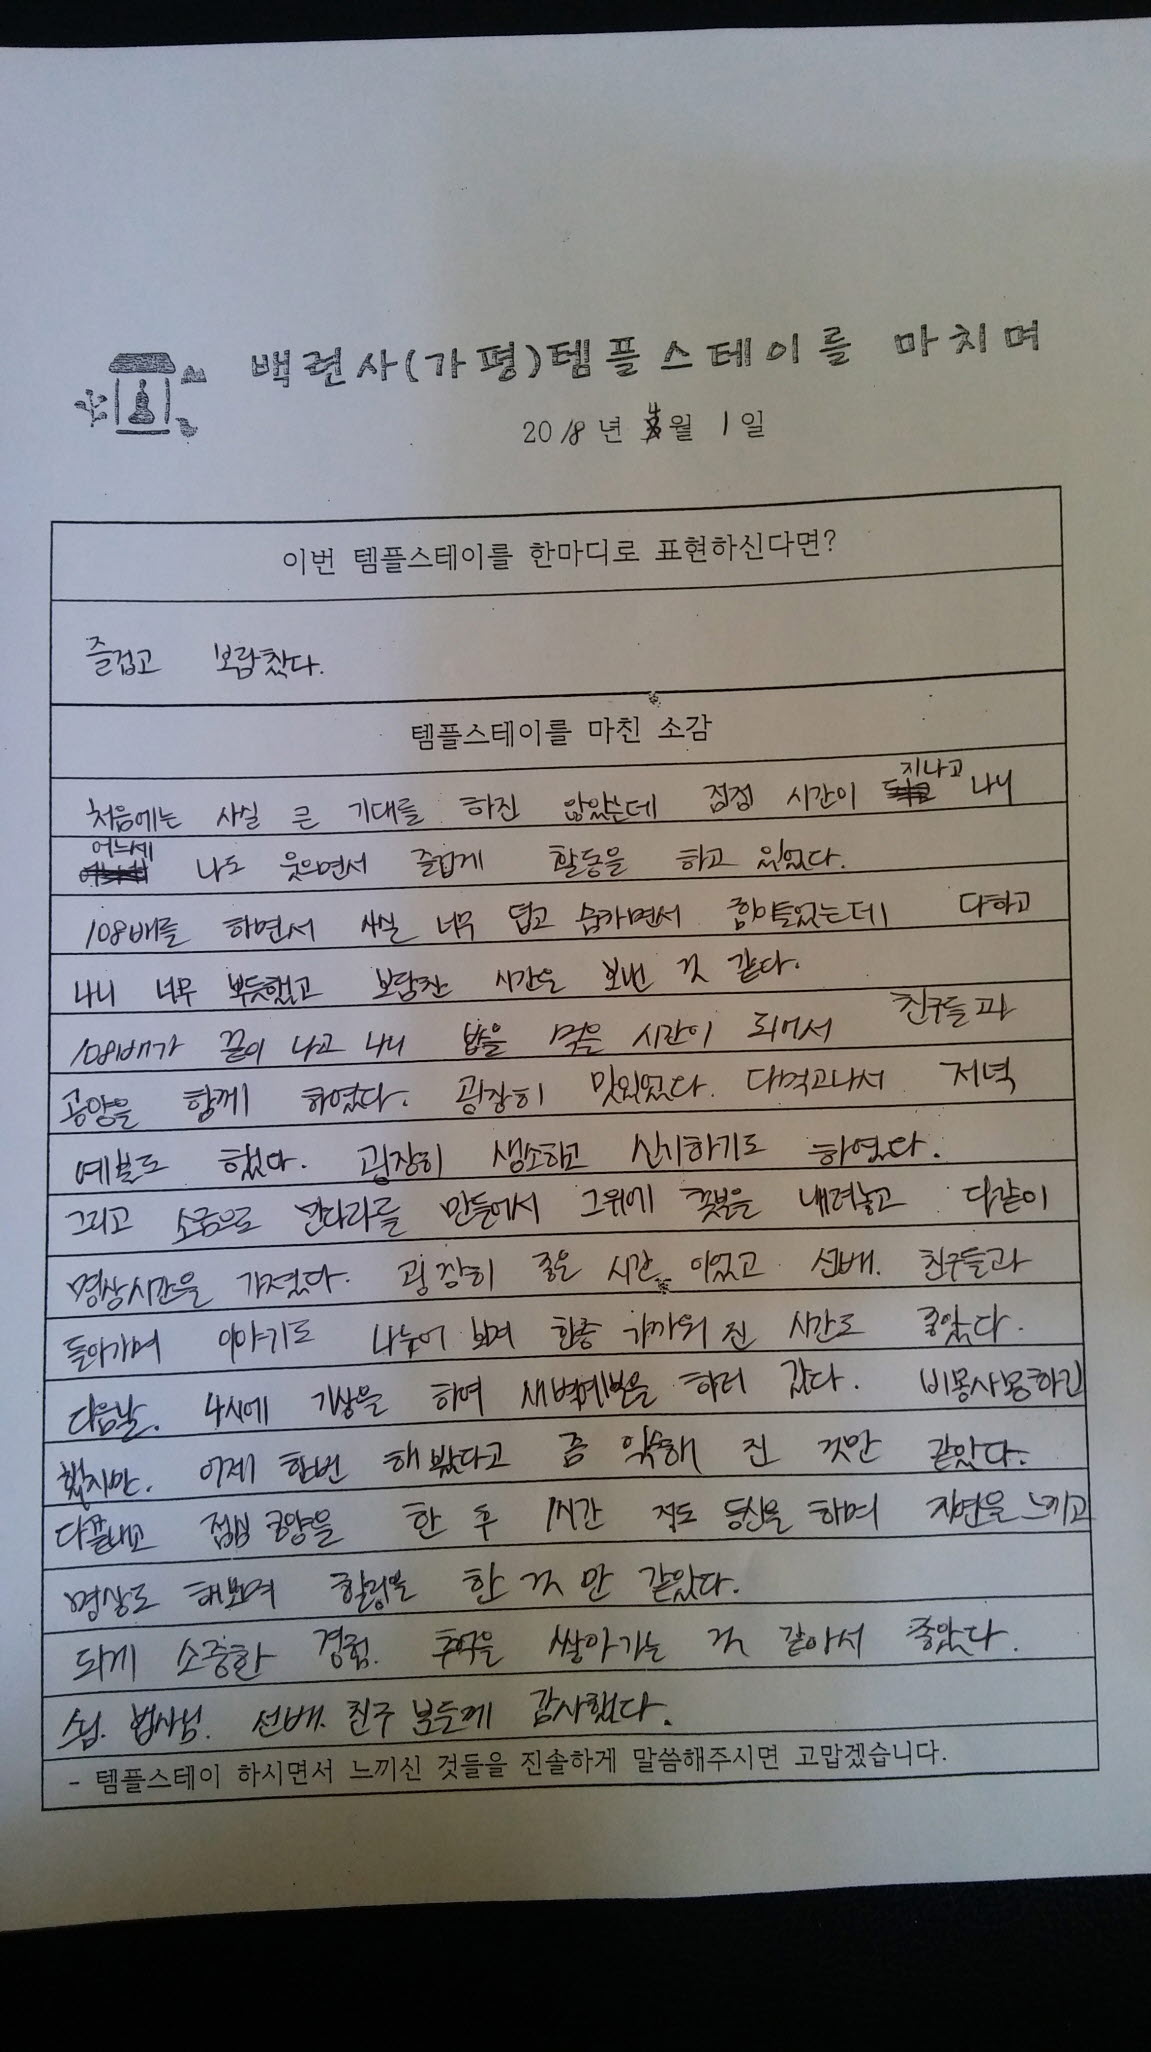 백련사(가평)템플스테이를 마치며
2018년 4월 1일
이번 템플스테이를 한마디로 표현하신다면?
즐겁고 보람찼다.
템플스테이를 마친 소감
처음에는 사실 큰 기대를 하진 않았는데 점점 시간이 지나고 나니
어느세 나도 웃으면서 즐겁게 활동을 하고 있었다.
108배를 하면서 사실 너무 덥고 숨차면서 힘이들었는데 다하고
나니 너무 뿌듯했고 보람찬 시간을 보낸 것 같다.
108배가 끝이 나고 나니 밥을 먹을 시간이 되어서 친구들과
공양을 함께 하였다. 굉장히 맛있었다. 다먹고나서 저녁
예불도 했다. 굉장히 생소하고 신기하기도 하였다.
그리고 소금으로 만다라를 만들어서 그위에 꽃봉을 내려놓고 다같이
명상시간을 가졌다. 굉장히 좋은 시간이었고 선배. 친구들과
돌아가며 이야기도 나누어 보며 한층 가까워 진 시간도 좋았다.
다음날. 4시에 기상을 하여 새벽예불을 하러 갔다. 비몽사몽하긴
했지만. 어제 한번 해봤다고 좀 익숙해 진 것만 같았다.
다끝내고 점심공양을 한 후 1시간 정도 등산을 하며 자연을 느끼고
명상도 해보며 힐링을 한 것 만 같았다.
되게 소중한 경험. 추억을 쌓아가는 것 같아서 좋았다.
스님. 법사님. 선배. 친구 분들께 감사했다.
- 템플스테이 하시면서 느끼신 것들을 진솔하게 말씀해주시면 고맙겠습니다.